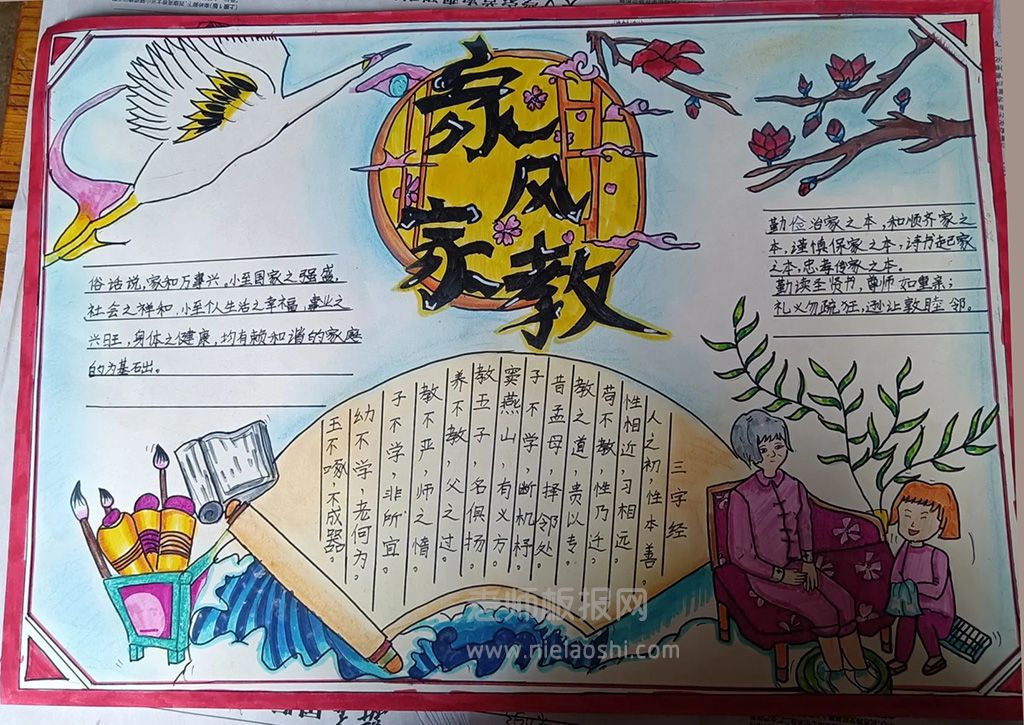 家风
家教
俗话说，家和万事兴。小至国家之强盛，
社会之祥和，小至个人生活之幸福，事业之
兴旺，身体之健康，均有赖和谐的家庭
的为基石出。
勤俭治家之本，和顺齐家之
本，谨慎保家之本，诗书起家
之本，忠孝传家之本。
勤读圣贤书，尊师如重亲；
礼义勿疏狂，逊让敦睦邻。
三字经
人之初，性本善。
性相近，习相远。
苟不教，性乃迁。
教之道，贵以专。
昔孟母，择邻处。
子不学，断机杼。
窦燕山，有义方。
教五子，名俱扬。
养不教，父之过。
教不严，师之惰。
子不学，非所宜。
幼不学，老何为。
玉不啄，不成器。
老师板报网
www.nielaoshi.com